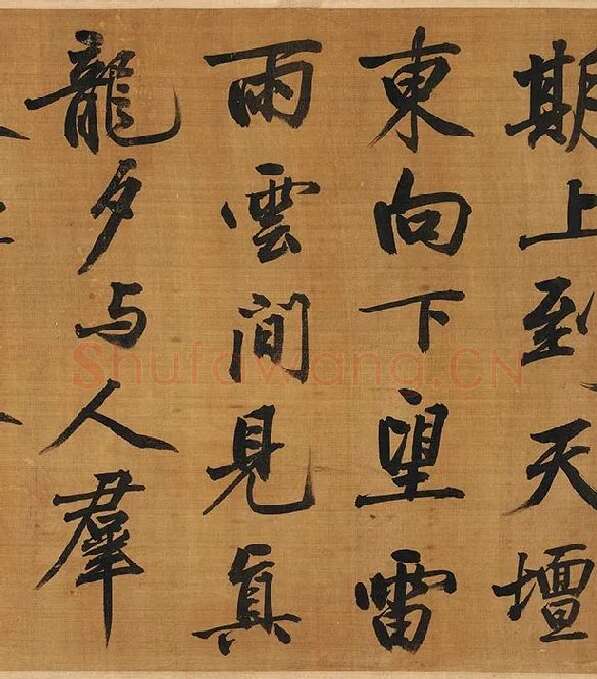 期上到天壇
東向下望雷
雨雲間見真
龍夕与人羣
Shufawang.CN